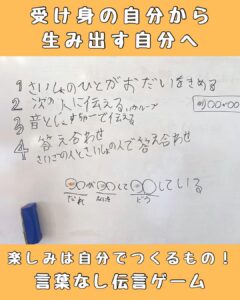 受け身の自分から
生み出す自分へ
1 さいしょのひとがおだいをきめる
2 次の人に伝える
3 音とジェスチャーで伝える
4 答え合わせ
さいごの人とさいしょの人で答え合わせ
○○が○○して○○している
だれ なにを どう
楽しみは自分でつくるもの！
言葉なし伝言ゲーム